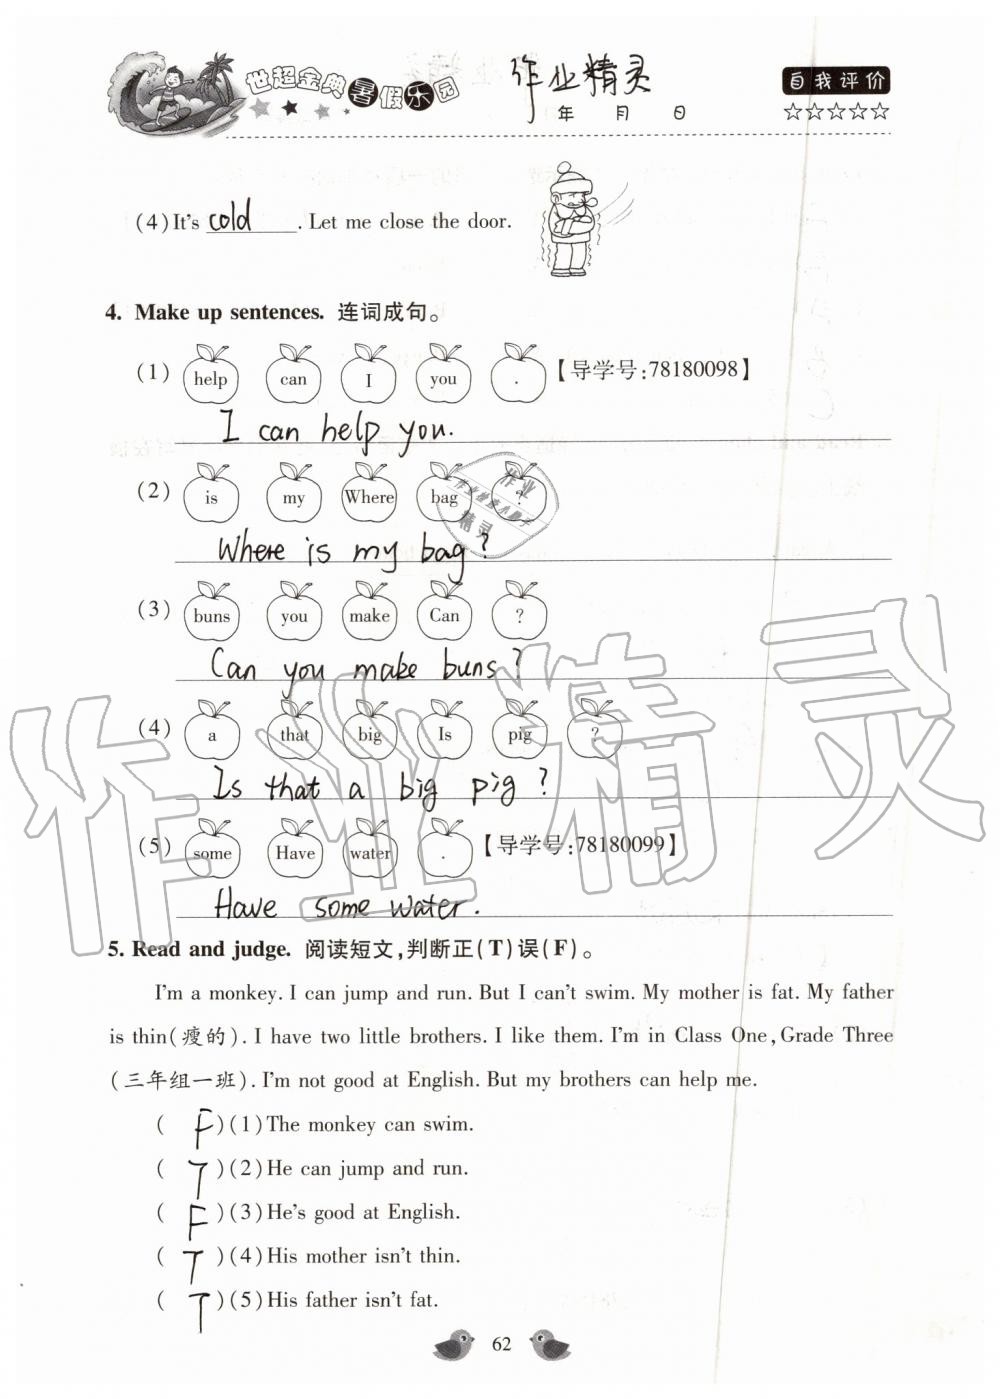 世超金典暑假乐园
作业精灵
年 月 日
自我评价
☆☆☆☆☆
(4)It's cold. Let me close the door.
4. Make up sentences. 连词成句。
(1) help can I you . 【导学号:78180098】
I can help you.
(2) is my Where bag ?
Where is my bag?
(3) buns you make Can ?
Can you make buns?
(4) a that big Is pig ?
Is that a big pig?
(5) some Have water . 【导学号:78180099】
Have some water.
5. Read and judge. 阅读短文,判断正(T)误(F)。
I'm a monkey. I can jump and run. But I can't swim. My mother is fat. My father
is thin(瘦的). I have two little brothers. I like them. I'm in Class One, Grade Three
(三年组一班). I'm not good at English. But my brothers can help me.
( F )(1)The monkey can swim.
( T )(2)He can jump and run.
( F )(3)He's good at English.
( T )(4)His mother isn't thin.
( T )(5)His father isn't fat.
62
作业精灵